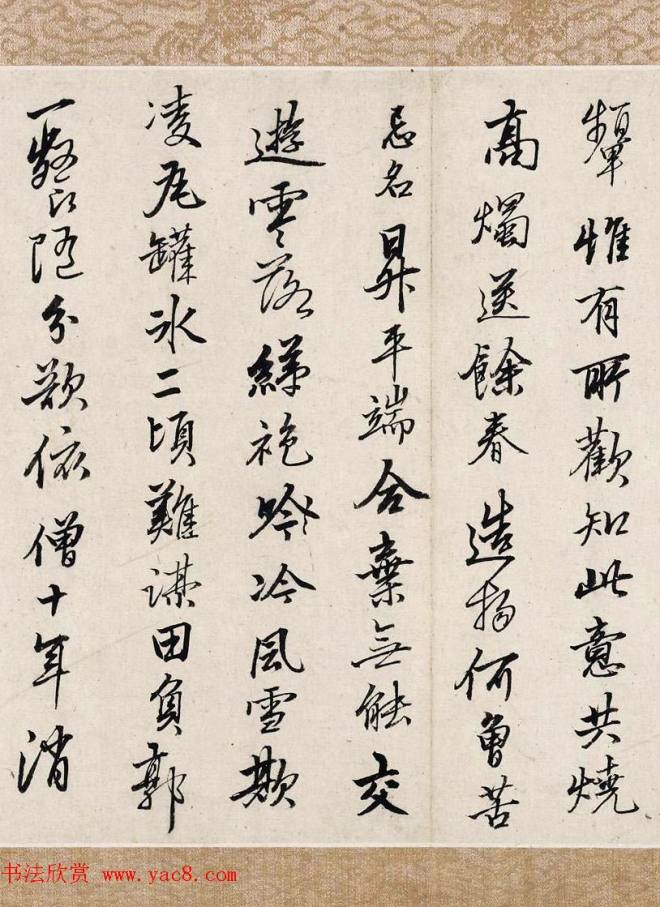 顰惟有所歡知此意共燒
高燭送餘春造物何曾苦
忌名昇平端合棄無能交
遊零落綈袍吟冷風雪欺
凌瓦罐冰二頃難謀田負郭
一餐隨分欲依僧十年消
书法欣赏 www.yac8.com